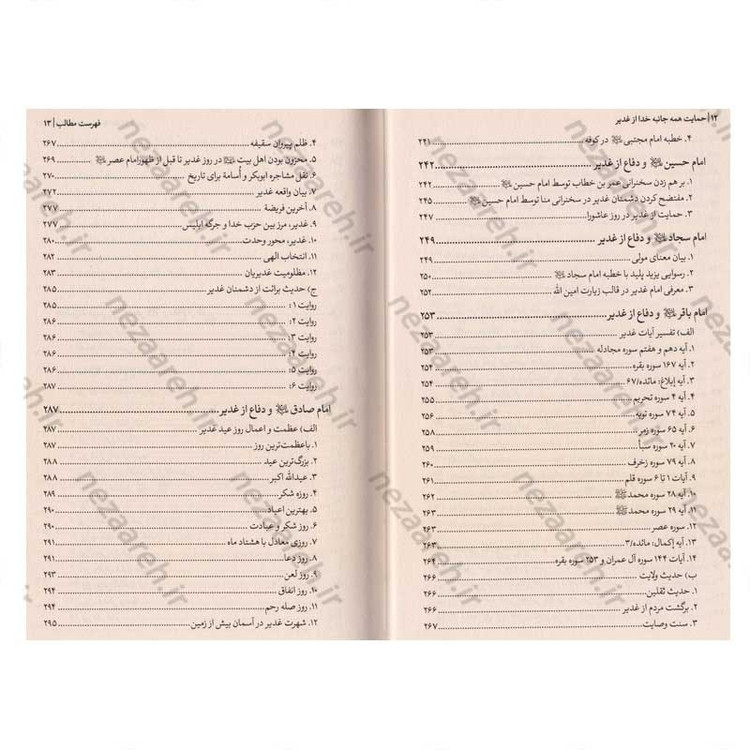 ۱۲ | حمایت همه جانبه خدا از غدیر
۴. خطبه امام مجتبی ﷺ در کوفه ۲۴۱
امام حسین ﷺ و دفاع از غدیر ۲۴۲
۱. بر هم زدن سخنرانی عمر بن خطاب توسط امام حسین ﷺ ۲۴۲
۲. مفتضح کردن دشمنان غدیر در سخنرانی منا توسط امام حسین ﷺ ۲۴۵
۳. حمایت از غدیر در روز عاشورا ۲۴۷
امام سجاد ﷺ و دفاع از غدیر ۲۴۹
۱. بیان معنای مولی ۲۴۹
۲. رسوایی یزید پلید با خطبه امام سجاد ﷺ ۲۵۰
۳. معرفی امام غدیر در قالب زیارت امین الله ۲۵۲
امام باقر ﷺ و دفاع از غدیر ۲۵۳
الف) تفسیر آیات غدیر ۲۵۳
۱. آیه دهم و هفتم سوره مجادله ۲۵۳
۲. آیه ۱۶۷ سوره بقره ۲۵۴
۳. آیه إبلاغ: مائده/۶۷ ۲۵۴
۴. آیه ۴ سوره تحریم ۲۵۵
۵. آیه ۷۴ سوره توبه ۲۵۶
۶. آیه ۶۵ سوره زمر ۲۵۸
۷. آیه ۲۰ سوره سبأ ۲۵۹
۸. آیه ۷۹ سوره زخرف ۲۶۰
۹. آیات ۱ تا ۶ سوره قلم ۲۶۱
۱۰. آیه ۲۸ سوره محمد ﷺ ۲۶۲
۱۱. آیه ۲۹ سوره محمد ﷺ ۲۶۳
۱۲. سوره عصر ۲۶۳
۱۳. آیه إکمال: مائده/۳ ۲۶۳
۱۴. آیات ۱۴۴ سوره آل عمران و ۲۵۳ سوره بقره ۲۶۴
ب) حدیث ولایت ۲۶۶
۱. حدیث ثقلین ۲۶۶
۲. برگشت مردم از غدیر ۲۶۶
۳. سنت وصایت ۲۶۷
فهرست مطالب | ۱۳
۴. ظلم پیروان سقیفه ۲۶۷
۵. محزون بودن اهل بیت ﷺ در روز غدیر تا قبل از ظهور امام عصر ﷺ ۲۶۹
۶. نقل مشاجره ابوبکر و أسامة برای تاریخ ۲۷۰
۷. بیان واقعه غدیر ۲۷۲
۸. آخرین فریضة ۲۷۷
۹. غدیر، مرز بین حزب خدا و جرگه ابلیس ۲۷۷
۱۰. غدیر، محور وحدت ۲۸۰
۱۱. انتخاب الهی ۲۸۲
۱۲. مظلومیت غدیریان ۲۸۳
ج) حدیث برائت از دشمنان غدیر ۲۸۵
روایت ۱: ۲۸۵
روایت ۲: ۲۸۶
روایت ۳: ۲۸۶
روایت ۴: ۲۸۶
روایت ۵: ۲۸۷
روایت ۶: ۲۸۷
امام صادق ﷺ و دفاع از غدیر ۲۸۷
الف) عظمت و اعمال روز عید غدیر ۲۸۷
۱. باعظمت‌ترین روز ۲۸۷
۲. بزرگ‌ترین عید ۲۸۸
۳. عیدالله اکبر ۲۸۸
۴. روزه شکر ۲۸۹
۵. بهترین اعیاد ۲۹۰
۶. روز شکر و عبادت ۲۹۰
۷. روزی معادل با هشتاد ماه ۲۹۱
۸. روز دعا ۲۹۱
۹. روز لعن ۲۹۳
۱۰. روز انفاق ۲۹۴
۱۱. روز صله رحم ۲۹۴
۱۲. شهرت غدیر در آسمان بیش از زمین ۲۹۵
nezaareh.ir
nezaareh.ir
nezaareh.ir
nezaareh.ir
nezaareh.ir
nezaareh.ir